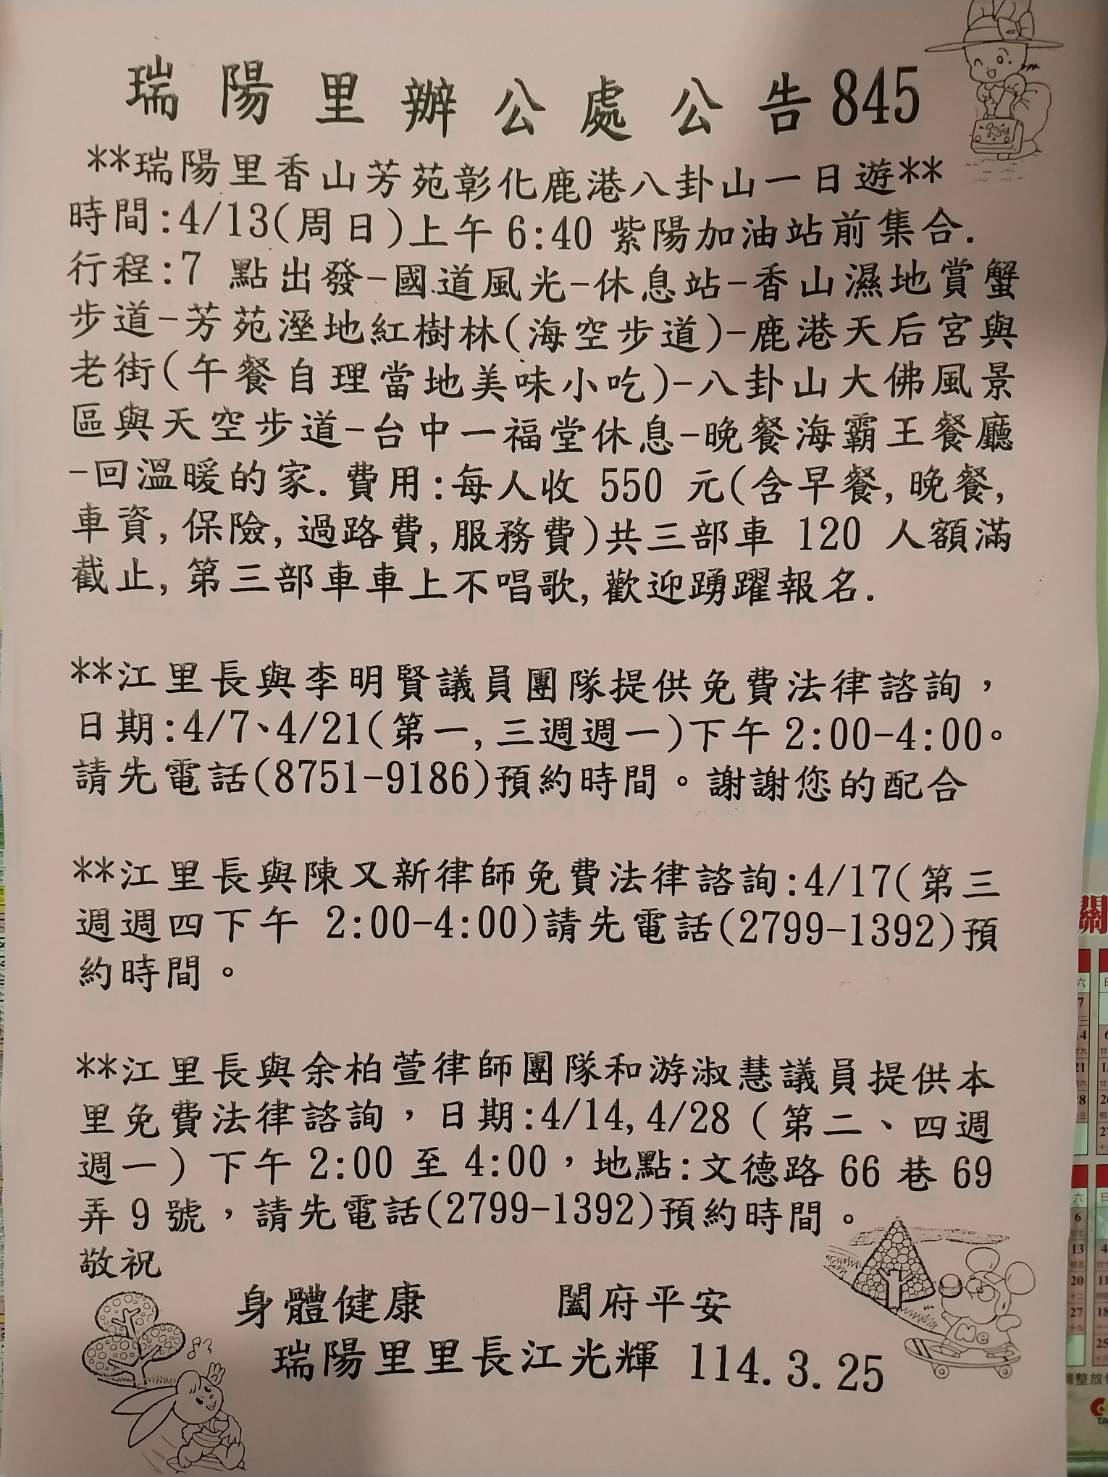 瑞陽里辦公處公告845
**瑞陽里香山芳苑彰化鹿港八卦山一日遊**
時間:4/13(周日)上午 6:40 紫陽加油站前集合.
行程:7 點出發-國道風光-休息站-香山濕地賞蟹
步道-芳苑溼地紅樹林(海空步道)-鹿港天后宮與
老街(午餐自理當地美味小吃)-八卦山大佛風景
區與天空步道-台中一福堂休息-晚餐海霸王餐廳
-回溫暖的家. 費用:每人收 550 元(含早餐,晚餐,
車資,保險,過路費,服務費)共三部車 120 人額滿
截止,第三部車車上不唱歌,歡迎踴躍報名.
**江里長與李明賢議員團隊提供免費法律諮詢，
日期:4/7、4/21(第一,三週週一)下午 2:00-4:00。
請先電話(8751-9186)預約時間。謝謝您的配合
**江里長與陳又新律師免費法律諮詢:4/17(第三
週週四下午 2:00-4:00)請先電話(2799-1392)預
約時間。
**江里長與余柏萱律師團隊和游淑慧議員提供本
里免費法律諮詢，日期:4/14,4/28（第二、四週
週一）下午 2:00 至 4:00，地點:文德路 66 巷 69
弄 9 號，請先電話(2799-1392)預約時間。
敬祝
身體健康 闔府平安
瑞陽里里長江光輝 114.3.25